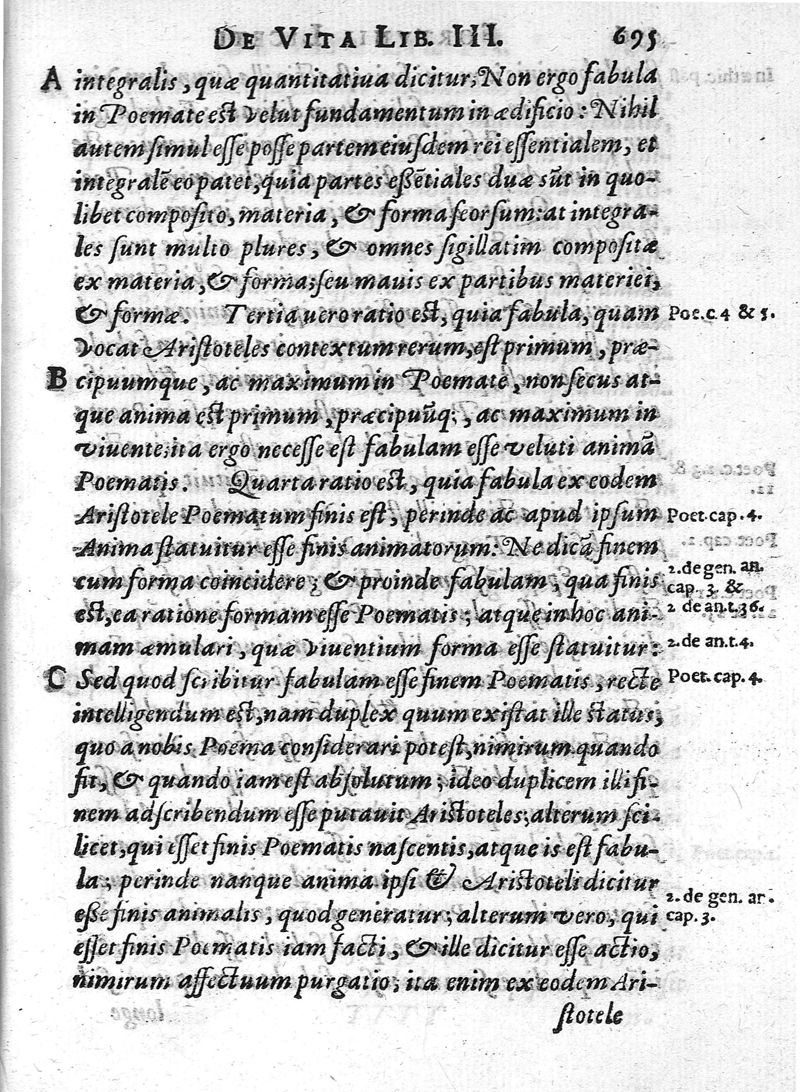 DE VITA LIB. III. 695
A integralis, quæ quantitatiua dicitur; Non ergo fabula
in Poemate est velut fundamentum in ædificio: Nihil
autem simul esse posse partem eiusdem rei essentialem, et
integralē eo patet, quia partes essētiales duæ sūt in quo-
libet composito, materia, & forma seorsum: at integra-
les sunt multo plures, & omnes sigillatim compositæ
ex materia, & forma; seu mauis ex partibus materiei,
& formæ. Tertia uero ratio est, quia fabula, quam Poe.c.4 & 5.
vocat Aristoteles contextum rerum, est primum, præ-
B cipuumque, ac maximum in Poemate, non secus at-
que anima est primum, præcipuūq;, ac maximum in
viuente; ita ergo necesse est fabulam esse veluti animā
Poematis. Quarta ratio est, quia fabula ex eodem
Aristotele Poematum finis est, perinde ac apud ipsum Poet.cap.4.
Anima statuitur esse finis animatorum: Ne dicā finem
cum forma coincidere; & proinde fabulam, qua finis 2.de gen. an. cap. 3. &
est, ea ratione formam esse Poematis; atque in hoc ani- 2 de an.t.36.
mam æmulari, quæ viuentium forma esse statuitur: 2.de an.t.4.
C Sed quod scribitur fabulam esse finem Poematis, recte Poet.cap.4.
intelligendum est, nam duplex quum existat ille status,
quo a nobis Poema considerari potest, nimirum quando
fit, & quando iam est absolutum; ideo duplicem illi fi-
nem adscribendum esse putauit Aristoteles; alterum sci-
licet, qui esset finis Poematis nascentis, atque is est fabu-
la; perinde nanque anima ipsi & Aristoteli dicitur
esse finis animalis, quod generatur; alterum vero, qui 2.de gen. ar. cap.3.
esset finis Poematis iam facti, & ille dicitur esse actio,
nimirum affectuum purgatio; ita enim ex eodem Ari-
stotele